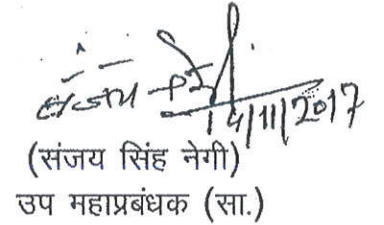 14/11/2017
(संजय सिंह नेगी)
उप महाप्रबंधक (सा.)